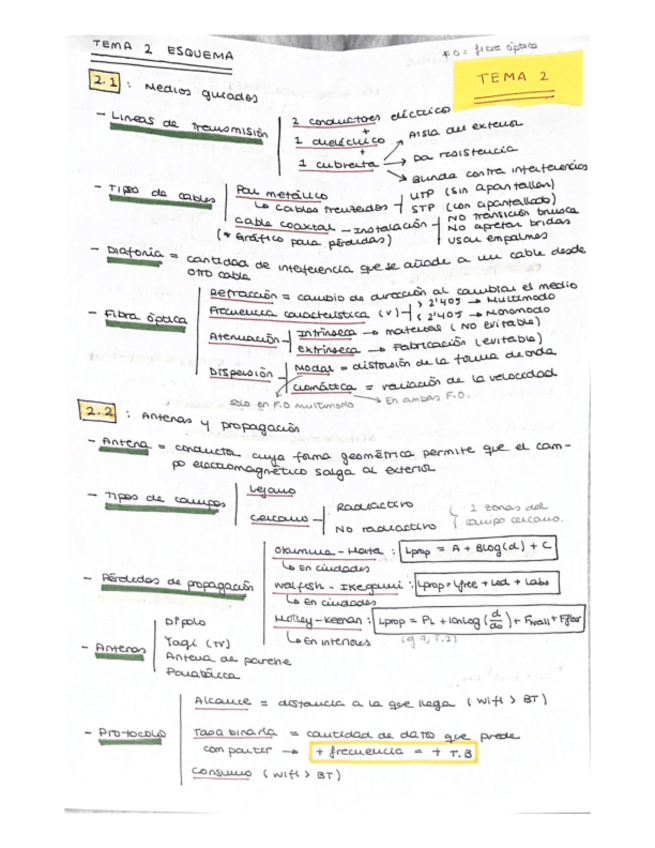 TEMA 2 ESQUEMA
F.O = fibra óptica
TEMA 2
2.1 : Medios guiados
- Lineas de transmisión
2 conductores eléctrico
+
1 dieléctrico
+
1 cubierta → Aisla del exterior
→ Da resistencia
→ Blinda contra interferencias
- Tipos de cables
Par metálico
↳ cables trenzados
UTP (sin apantallar)
STP (con apantallado)
Cable coaxial - Instalación
No transición brusca
No apretar bridas
Usar empalmes
(* Gráfico para pérdidas)
- Diafonía = cantidad de interferencia que se añade a un cable desde
otro cable
- Fibra óptica
Refracción = cambio de dirección al cambiar el medio
Frecuencia característica (V)
> 2'405 → Multimodo
< 2'405 → Monomodo
Atenuación
Intrínseca → material (No evitable)
extrínseca → Fabricación (evitable)
Dispersión
Modal = distorsión de la forma de onda
cromática = variación de la velocidad
solo en F.O multimodo
→ En ambas F.O.
2.2 : Antenas y propagación
- Antena = conductor cuya forma geométrica permite que el cam-
po electromagnético salga al exterior
- Tipos de campos
Lejano
cercano
Radiactivo
No radiactivo
2 zonas del
campo cercano.
- Pérdidas de propagación
Okumura - Hata : Lprop = A + Blog(d) + C
↳ En ciudades
Walfish - Ikegami : Lprop = Lfree + Led + Labs
↳ En ciudades
Motley - Keenan : Lprop = PL + 10nlog(d/do) + Fwall + Ffloor
↳ En interiores
- Antenas
Dipolo
Yagi (TV)
Antena de parche
Parabólica
- Protocolo
Alcance = distancia a la que llega (Wifi > BT)
Tasa binaria = cantidad de datos que puede
compartir → + frecuencia = + T.B
Consumo (Wifi > BT)